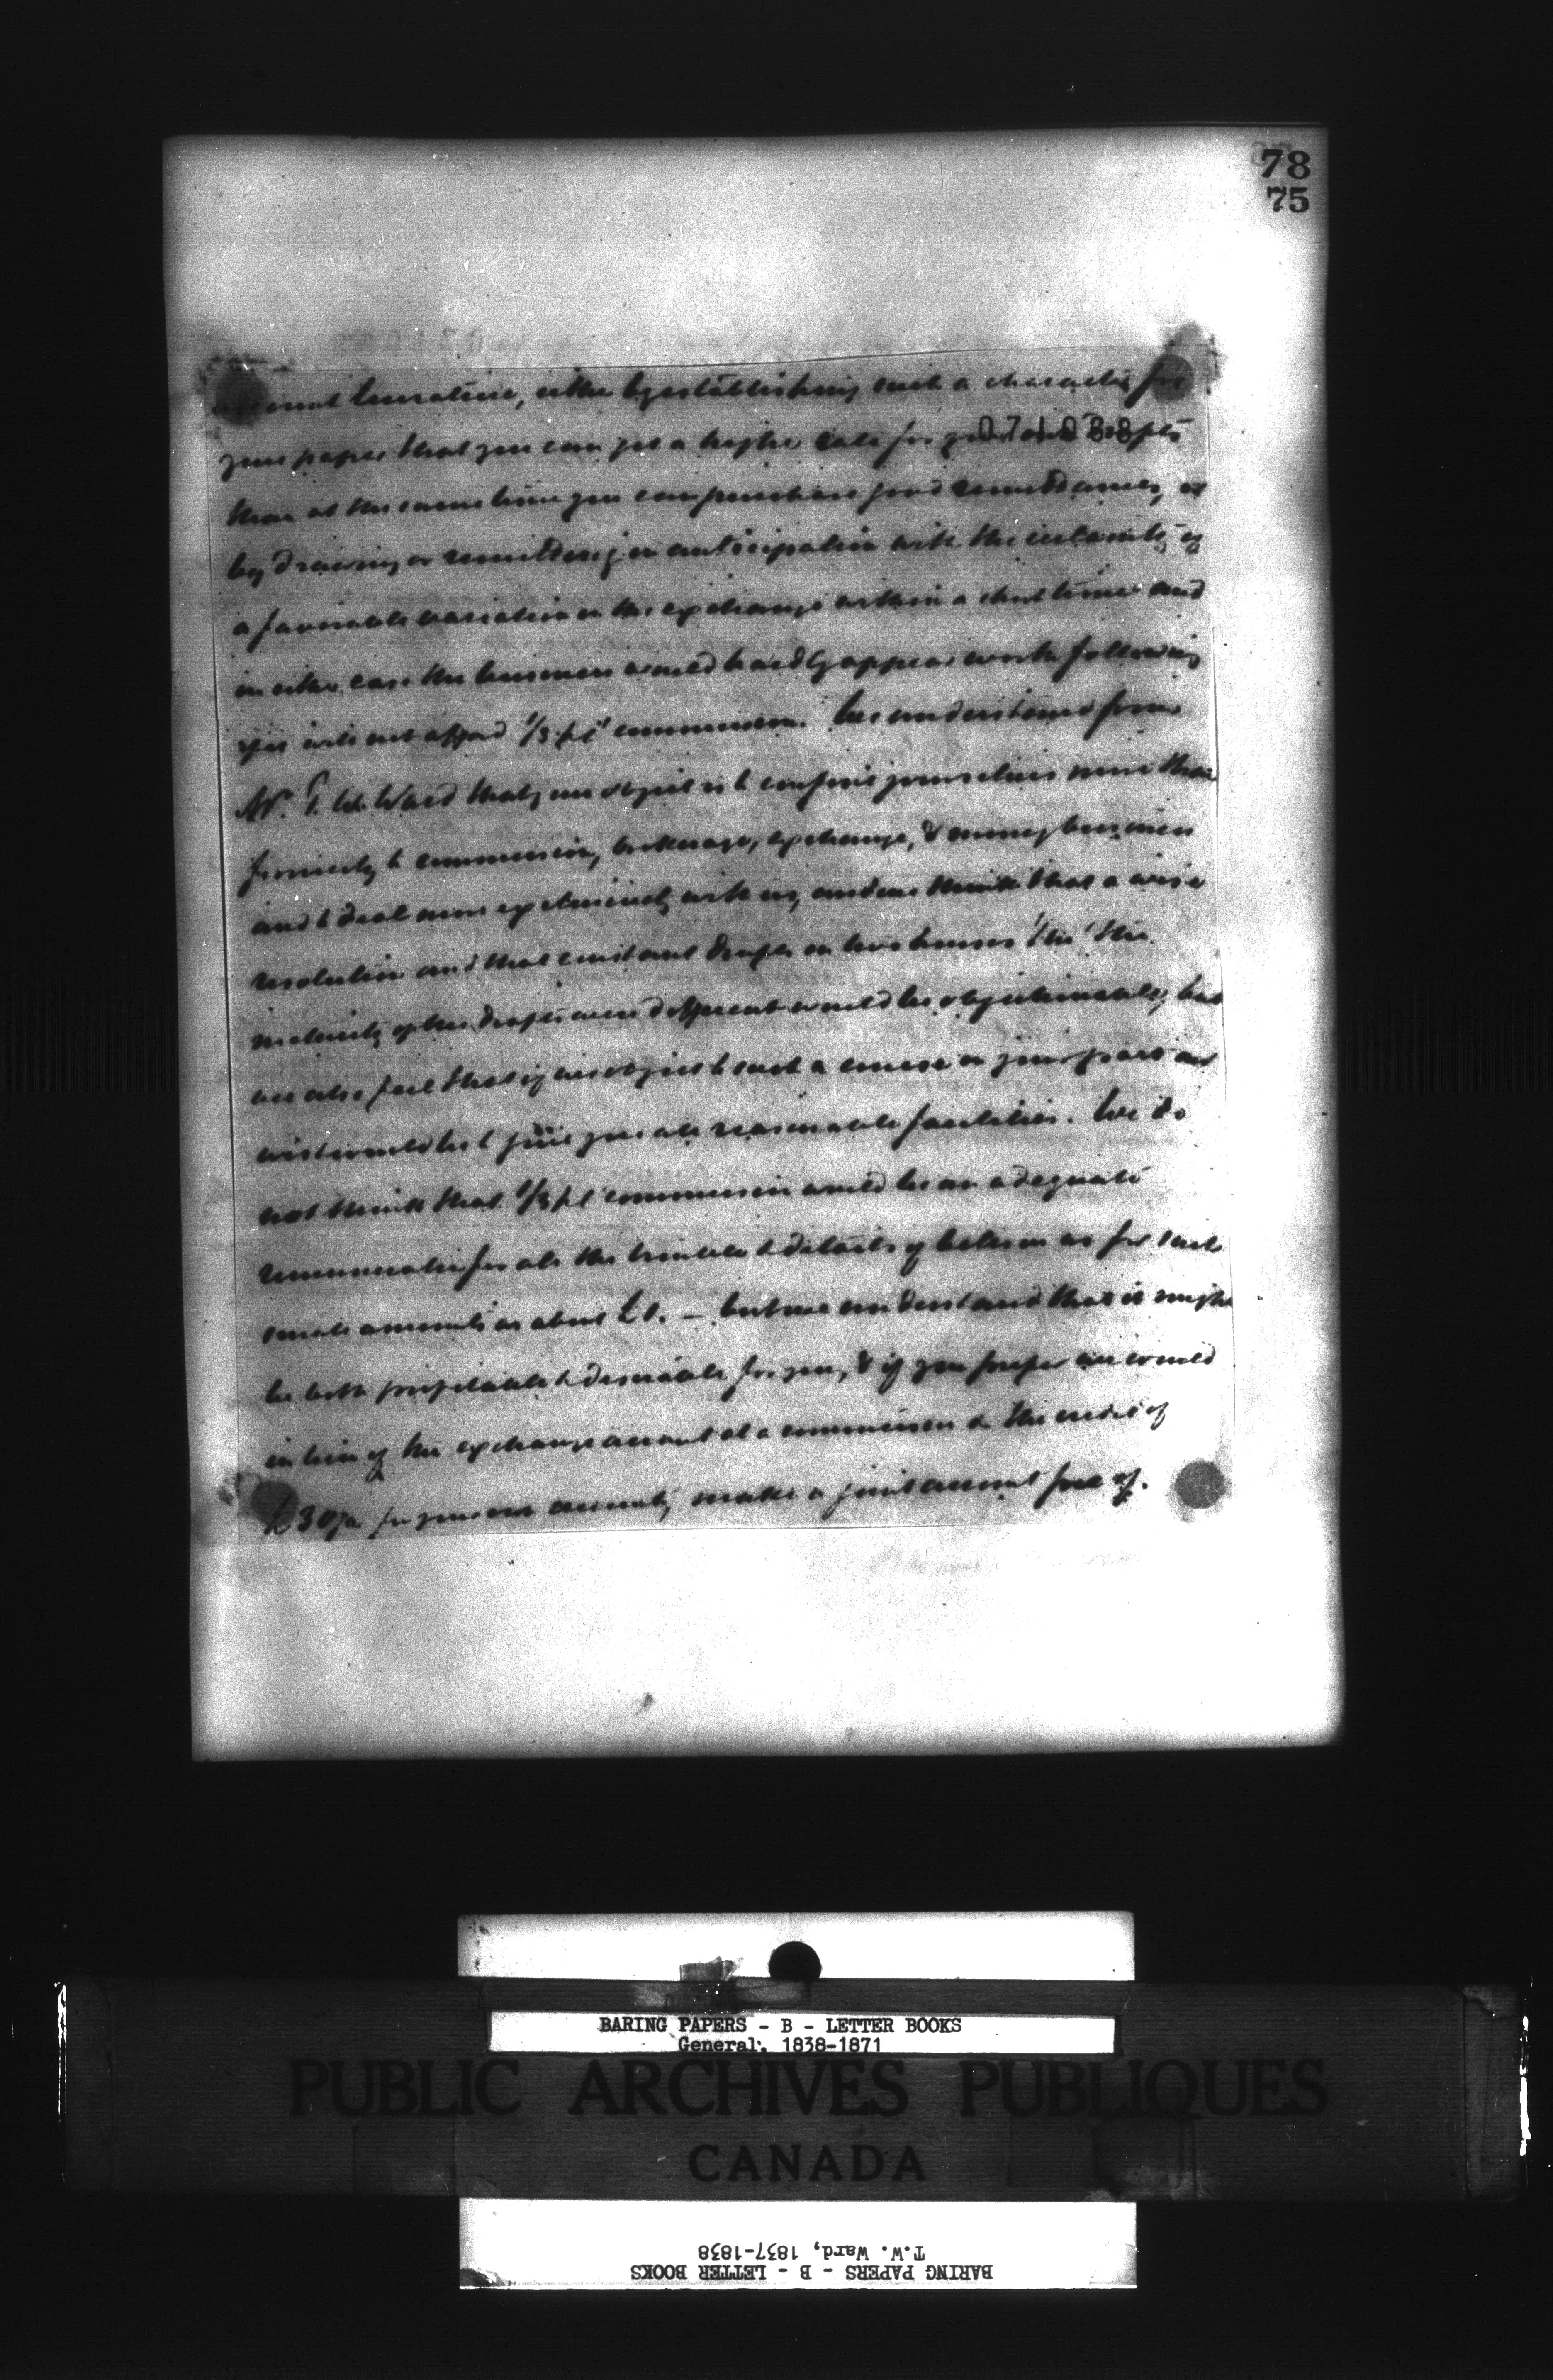 78
75
account lucrative, either by establishing such a character for
your paper that you can get a higher rate for your own drafts
071088
than at the same time you can purchase good remittances, or
by drawing or remitting in anticipation with the certainty of
a favorable variation in the exchange within a short time and
in either case the business would hardly appear worth following
if it will not afford 1/3 pct commission. We understand from
Mr. T. W. Ward that your object is to confine yourselves more than
formerly to commission, brokerage, exchange, & money business
and to deal more exclusively with us, and we think that a wise
resolution and that constant drafts on two houses tho' the
maturity of the drafts were different would be objectionable, but
we also feel that if we object to such a course on your part our
wish would be to give you all reasonable facilities. We do
not think that 1/3 pct commission would be an adequate
remuneration for all the trouble & details of between us for such
small amounts as about £ - but we understand that it might
be both profitable & desirable for you, & if you prefer we would
in lieu of the exchange account at a commission & the credit of
£30/m for your own account, make a joint account free of.
BARING PAPERS - B - LETTER BOOKS
General, 1838-1871
PUBLIC ARCHIVES PUBLIQUES
CANADA
T.W. Ward, 1837-1838
BARING PAPERS - B - LETTER BOOKS